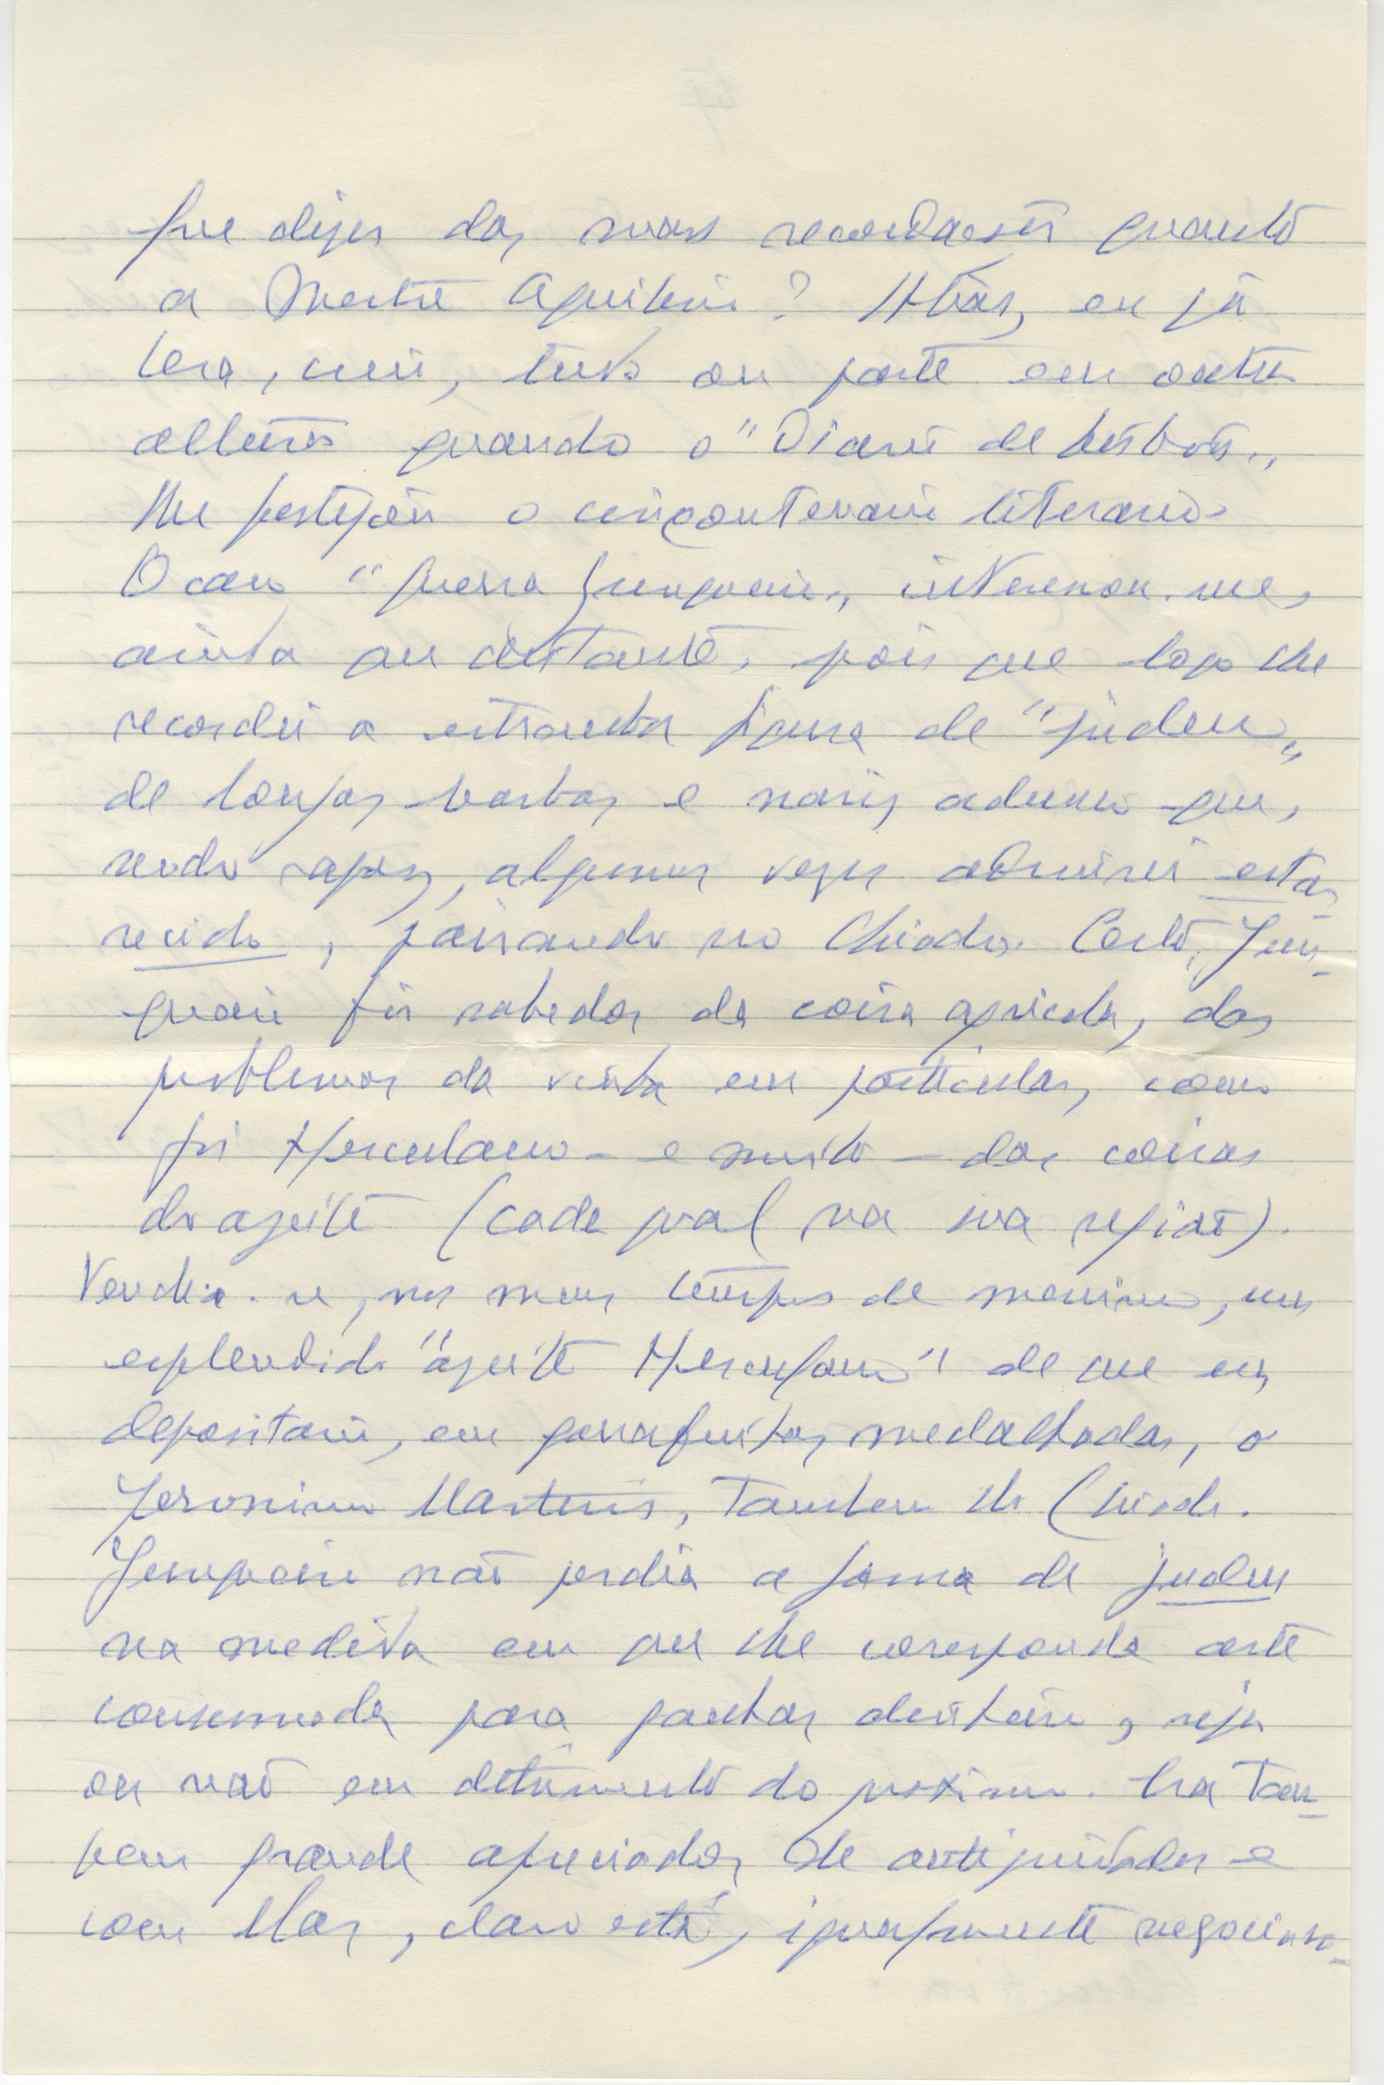 Que dizer das suas recordações quanto
a Mestre Aquilino? Aliás, eu já
lera, creio, tudo ou parte em outra
altura quando o "Diario de Lisboa"
lhe festejou o cinquentenario literario.
O caso "Guerra Junqueiro" interessou-me,
ainda que bastante, pois que logo me
recordei a estranha figura de "judeu"
de longas barbas e nariz adunco que,
sendo rapaz, algumas vezes admirei esta
recido, pairando no Chiado. Certo, Jun-
queiro foi sabedor da coisa agricola, dos
problemas da vinha em particular, como
foi Herculano - e muito - das coisas
do azeite (cada qual na sua região).
Vendia-se, nos meus tempos de menino, um
esplendido "azeite Herculano" de que era
depositario, em garrafinhas medalhadas, o
Jeronimo Martins, tambem do Chiado.
Junqueiro não perdia a fama de judeu
na medida em que lhe corresponda arte
consumada para ganhar dinheiro, seja
ou não em detrimento do proximo. Era tam-
bem grande apreciador de antiguidades e
com elas, claro está, igualmente negociava